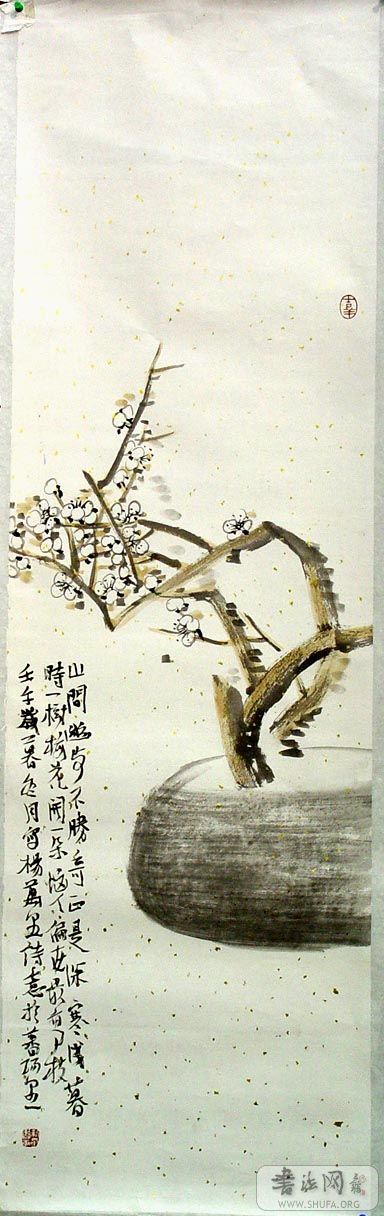 山間幽步不勝奇正是深寒浅暮
時一樹梅花開一朵惱人偏在最高枝
壬午歲暮冬月寫楊萬里诗意於
書法网
WWW.SHUFA.ORG